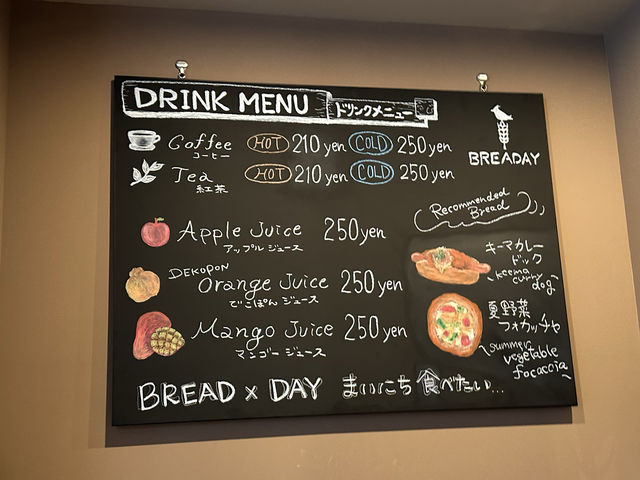 DRINK MENU ドリンクメニュー
BREADAY
Coffee HOT 210 yen COLD 250 yen
コーヒー
Tea HOT 210 yen COLD 250 yen
紅茶
Apple Juice 250 yen
アップル ジュース
DEKOPON
Orange Juice 250 yen
でこぽん ジュース
Mango Juice 250 yen
マンゴー ジュース
Recommended
Bread
キーマカレー
ドック
keema
curry
dog
夏野菜
フォカッチャ
summer
vegetable
focaccia
BREAD x DAY まいにち 食べたい...